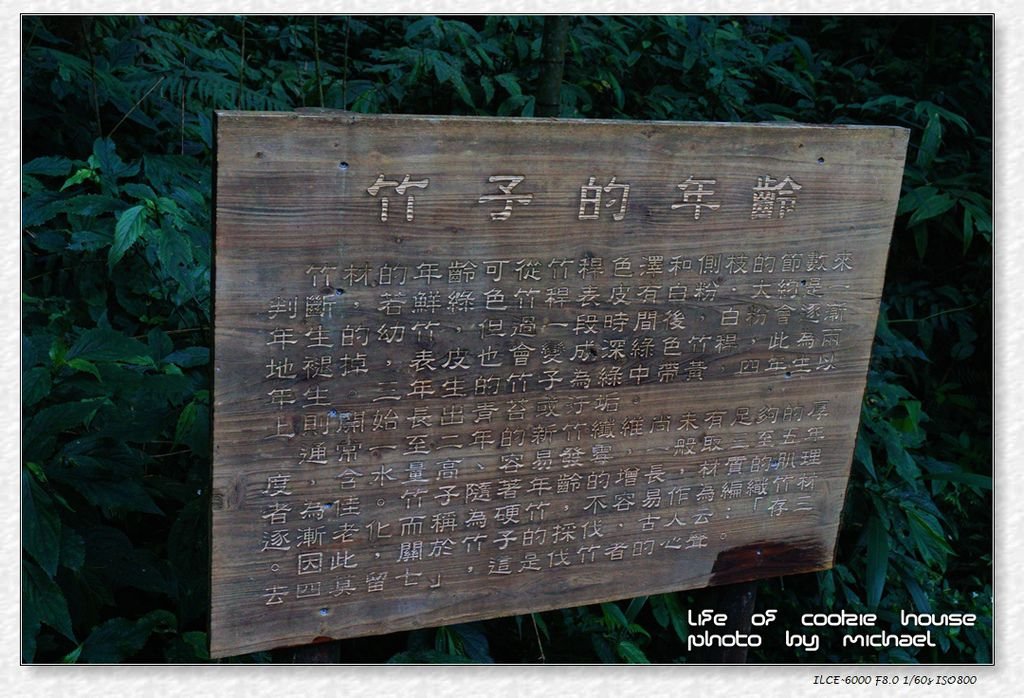 竹子的年齡
竹材的年齡可從竹稈色澤和側枝的節數來
判斷，若鮮綠色竹稈表皮有白粉，大約是一
年生的幼竹，但過一段時間後，白粉會逐漸
地褪掉，表皮也會變成深綠色竹稈，此為兩
年生。三年生的竹子為綠中帶黃，四年生以
上則開始長出青苔或汙垢。
通常一至二年的新竹纖維尚未有足夠的厚
度，含水量高、容易發霉，一般取三至五年
者為佳。竹子隨著年齡的增長，材質的肌理
逐漸老化而稱為硬竹，不容易作為編織竹材
。因此，關於竹子的採伐、古人云：「存三
去四莫留七」，這是伐竹者的心聲。
Life of cookie house
photo by michael
ILCE-6000 F8.0 1/60s ISO800